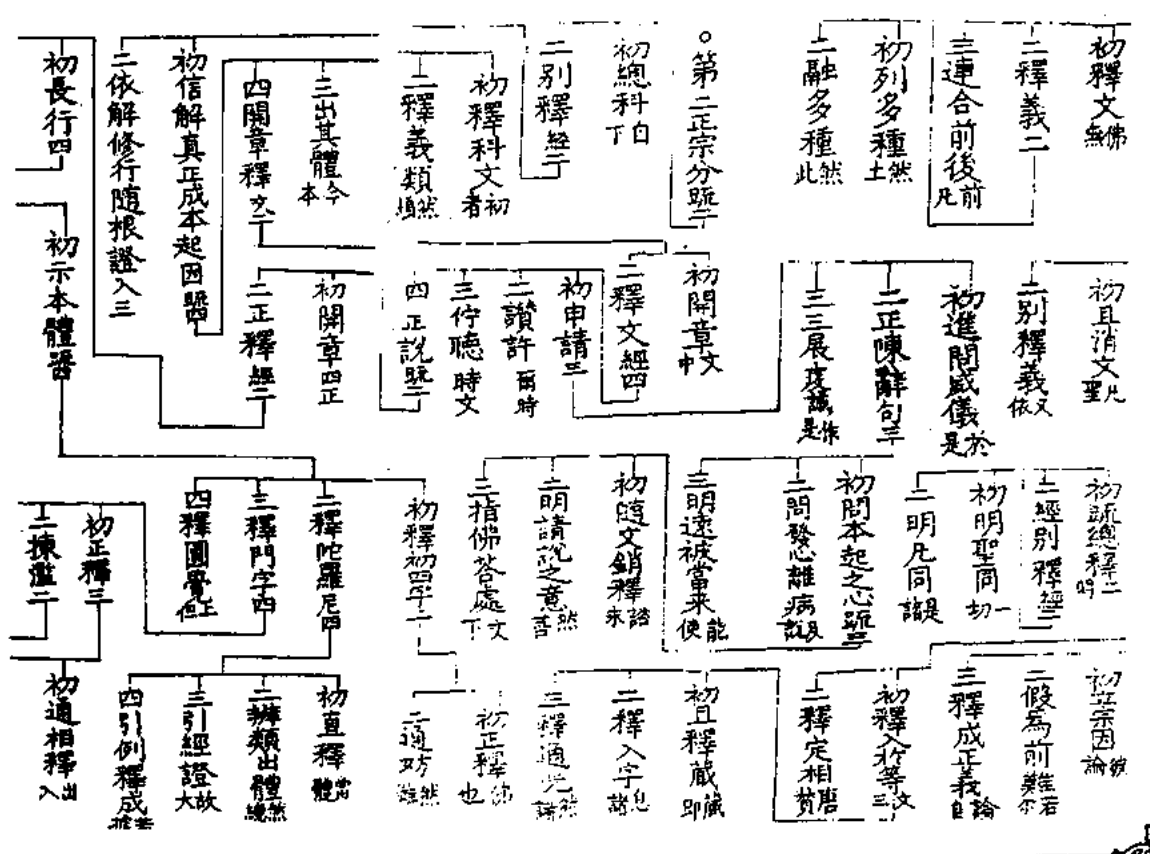 初釋文佛無
二釋義二
三連合前後前凡
初列多種然土
二融多種然此
○第二正宗分疏二
初總科自下
二別釋經二
初釋科文初者
二釋義類然
三出其體今本
四開章釋文二
初信解真正成本起因
二依解修行隨根證入三
初長行四
初且消文凡聖
二別釋義又依
初進問威儀於是
二正陳辭句三
三三展虔誠作是
初開章文中
二釋文經四
初申請三
二讚許爾時
三佇聽時文
四正說
初開章四正
二正釋經二
初示本體
初疏總釋二
二經別釋經二
初明聖同一切
二明凡同是諸
初問本起之心疏三
二問發心離病
三明遠被當來能使
初隨文銷釋諮來
二明請說之意然
三指佛答處文下
初釋初四字二
二釋陀羅尼四
三釋門字四
四釋圓覺
初正釋三
二揀濫二
初立宗因論
二假為前難若
三釋成正義論
初釋入於等文三
二釋定相
初且釋藏藏即
二釋入字
三釋通光然
初正釋也
二通妨然
初直釋體
二辨類出體然
三引經證故大
四引例釋成
初通相釋出入